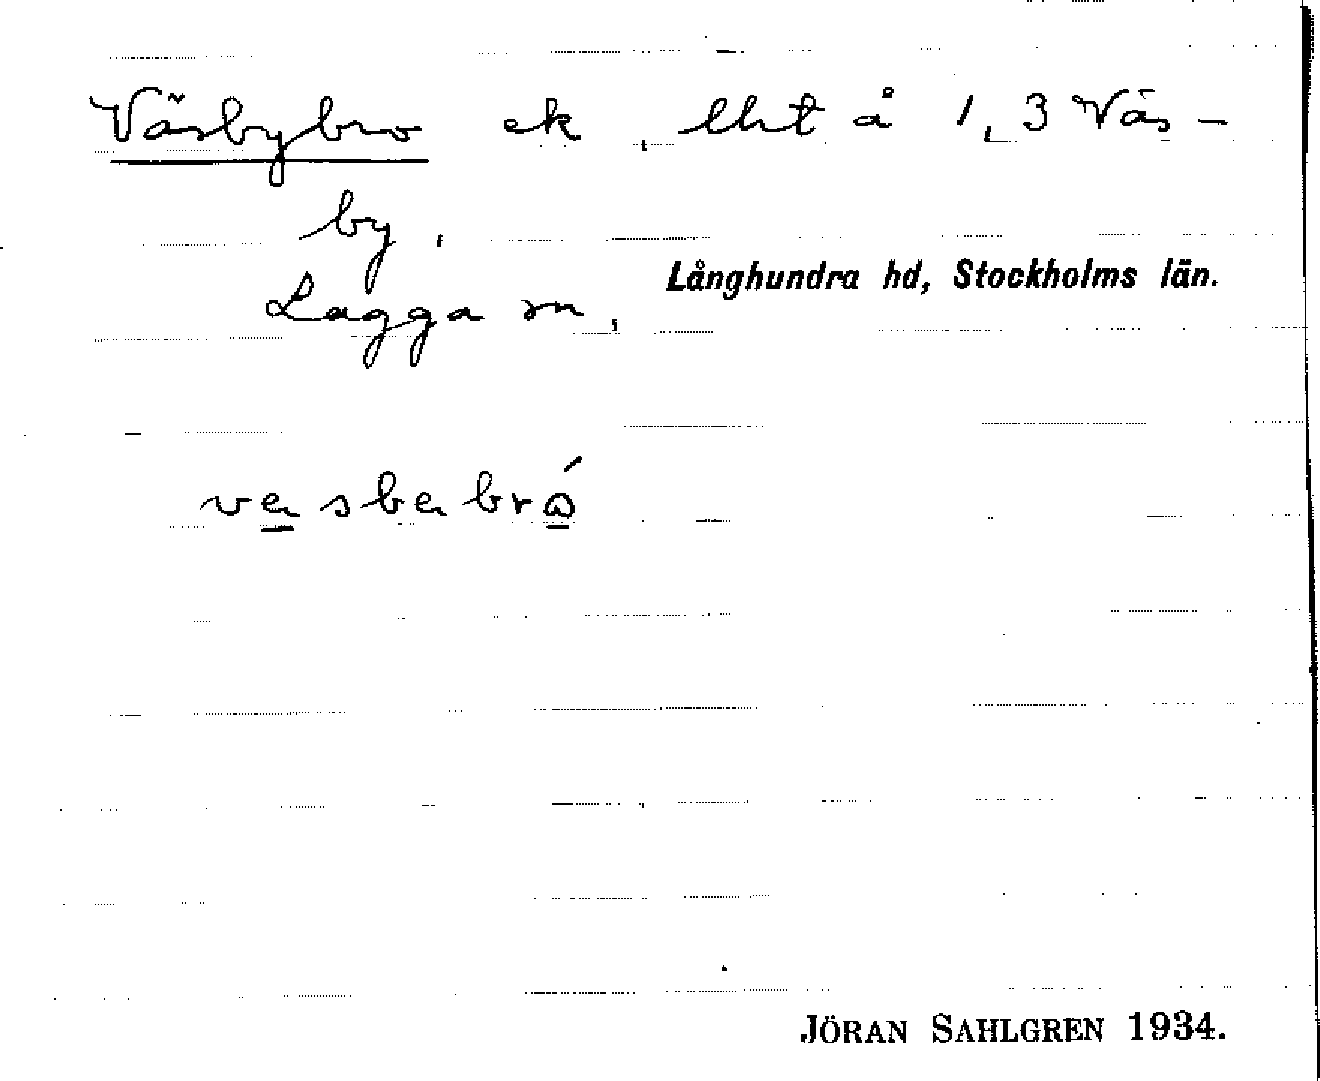 Väsbybro ek, lht å 1, 3 Väs-
by,
Långhundra hd, Stockholms län.
Lagga sn,
JÖRAN SAHLGREN 1934.